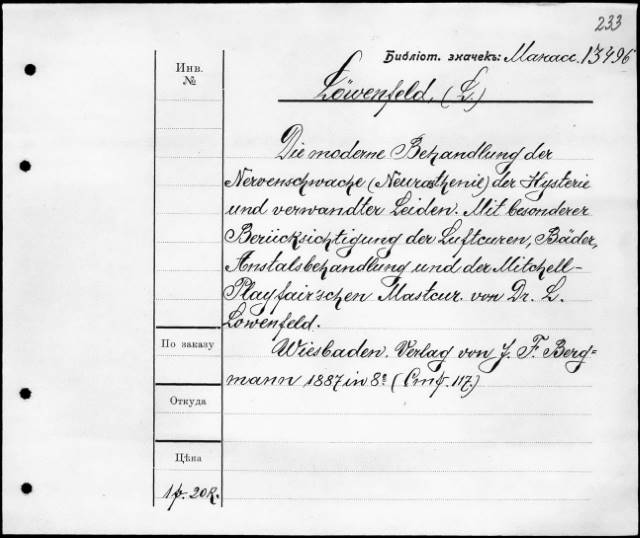 233
Библіот. значекъ: Манасс. 13496
Инв.
№
Löwenfeld, (L.)
Die moderne Behandlung der
Nervenschwache (Neurasthenie) der Hysterie
und verwandter Leiden. Mit besonderer
Berücksichtigung der Luftcuren, Bäder,
Anstalsbehandlung und der Mitchell-
Playfair'schen Mastcur. von Dr. L.
Lowenfeld.
Wiesbaden. Verlag von J. F. Berg=
mann 1887 in 8º (Стр. 117.)
По заказу
Откуда
Цѣна
1 р. 20 к.